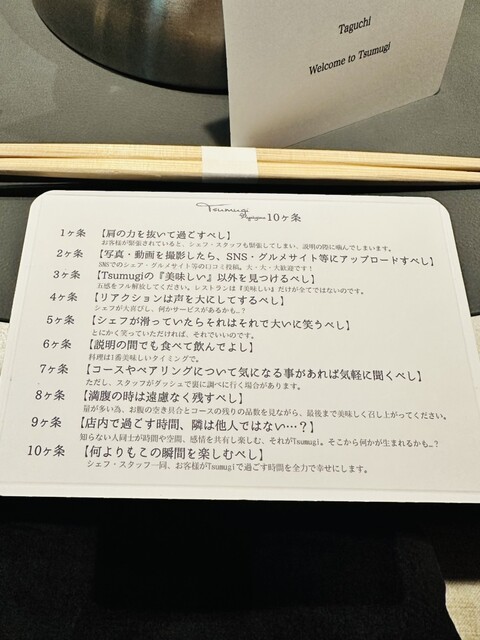 Taguchi
Welcome to Tsumugi
Tsumugi 10ヶ条
1ヶ条 【肩の力を抜いて過ごすべし】
お客様が緊張されていると、シェフ・スタッフも緊張してしまい、説明の際に噛んでしまいます。
2ヶ条 【写真・動画を撮影したら、SNS・グルメサイト等にアップロードすべし】
SNSでのシェア・グルメサイト等の口コミ投稿。大・大・大歓迎です！
3ヶ条 【Tsumugiの『美味しい』以外を見つけるべし】
五感をフル解放してください。レストランは『美味しい』だけが全てではないのです。
4ヶ条 【リアクションは声を大にしてするべし】
シェフが大喜びし、何かサービスがあるかも…？
5ヶ条 【シェフが滑っていたらそれはそれで大いに笑うべし】
とにかく笑っていただければ、それでいいのです。
6ヶ条 【説明の間でも食べて飲んでよし】
料理は1番美味しいタイミングで。
7ヶ条 【コースやペアリングについて気になる事があれば気軽に聞くべし】
ただし、スタッフがダッシュで裏に調べに行く場合があります。
8ヶ条 【満腹の時は遠慮なく残すべし】
量が多い為、お腹の空き具合とコースの残りの品数を見ながら、最後まで美味しく召し上がってください。
9ヶ条 【店内で過ごす時間、隣は他人ではない…？】
知らない人同士が時間や空間、感情を共有し楽しむ、それがTsumugi。そこから何かが生まれるかも…？
10ヶ条 【何よりもこの瞬間を楽しむべし】
シェフ・スタッフ一同、お客様がTsumugiで過ごす時間を全力で幸せにします。